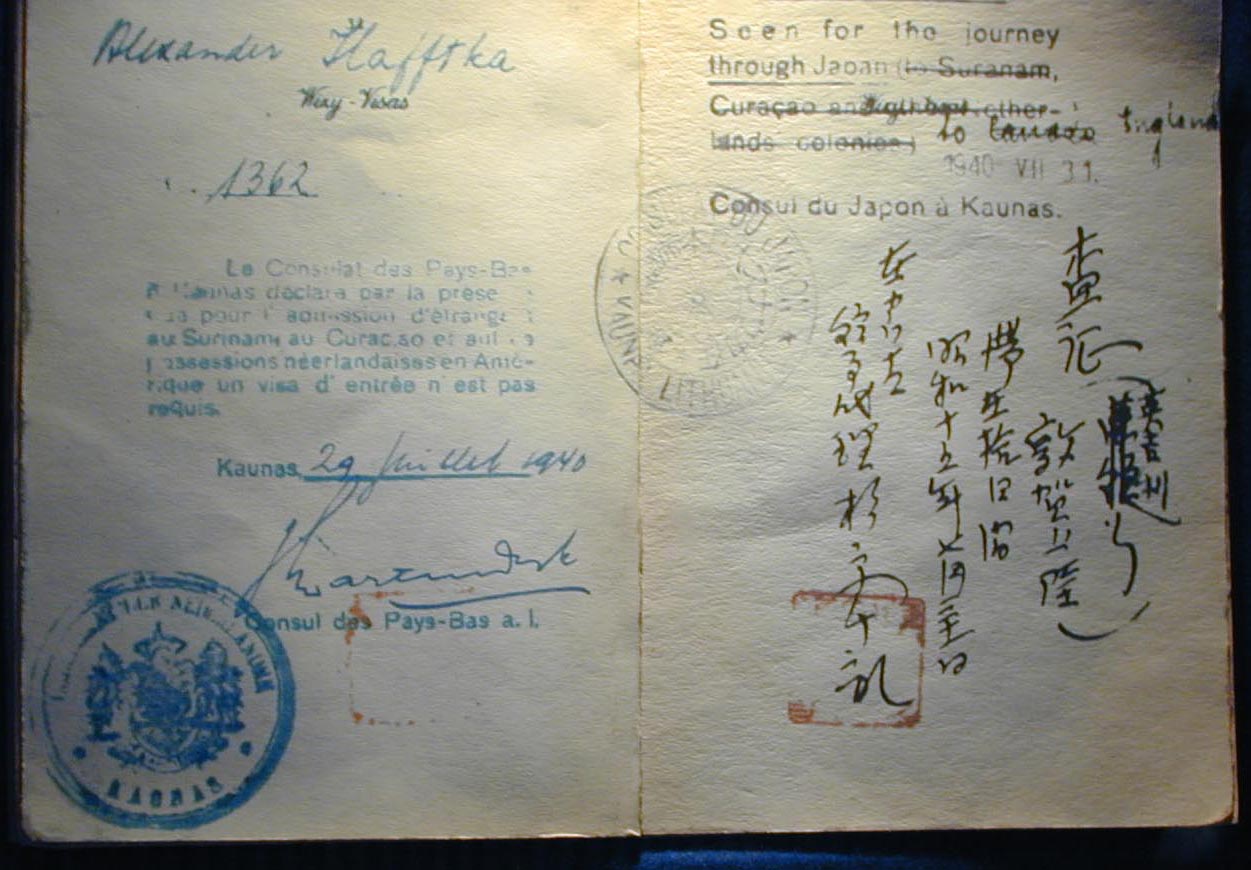 Alexander Hafftka
Wizy - Visas
1362
Le Consulat des Pays-Bas
à Kaunas déclare par la prése
pour l' admission d'étrange
au Surinam, au Curaçao et aut
possessions néerlandaises en Amé-
rique un visa d' entrée n est pas
requis.
Kaunas, 29 Juillet 1940
Consul des Pays-Bas a. I.
KAUNAS
Seen for the journey
through Japan (to Suranam,
Curaçao and other
lands colonies) to Canada England
1940 VII 31.
Consul du Japon à Kaunas.
DU JAPON
KAUNAS
查证
英吉利
行
敦賀上陸
滞在拾日間
昭和十五年七月
在カウナス
領事代理 杉原千畝